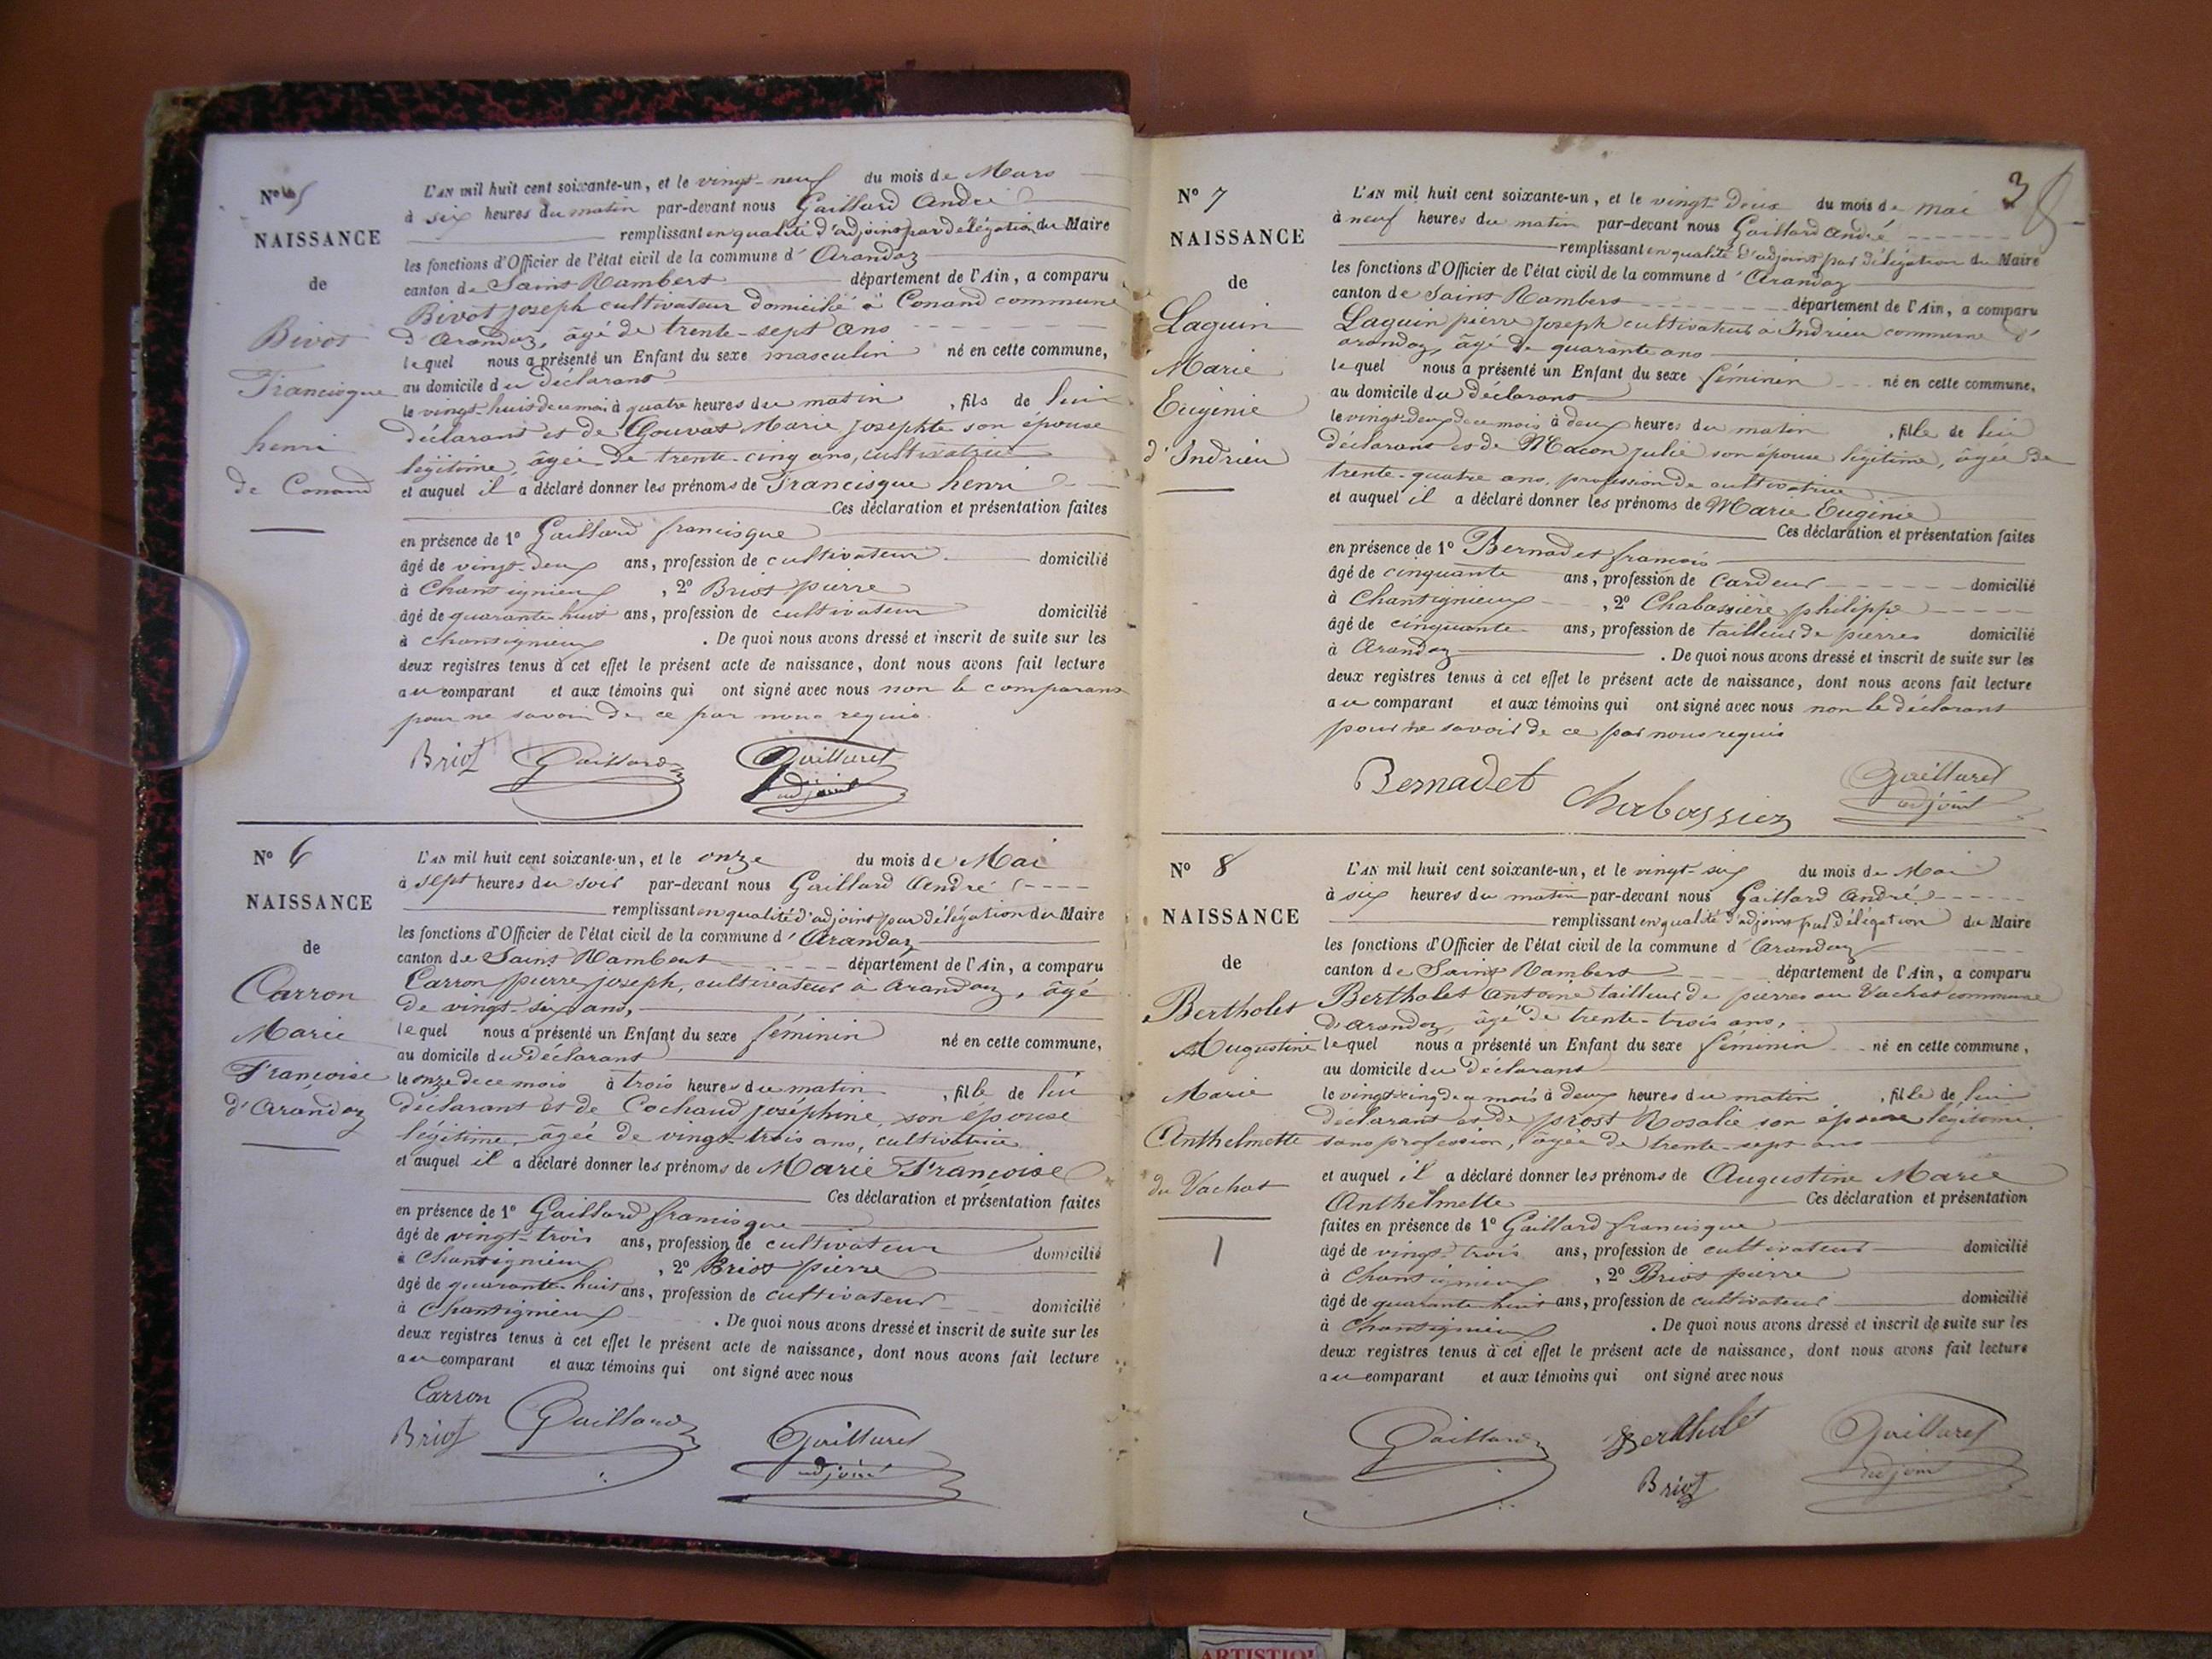 N° 5
NAISSANCE
de
Bivot
Francisque
henri
de Conand
L'AN mil huit cent soixante-un, et le vingt-neuf du mois de Mars
à six heures du matin par-devant nous Gaillard André
remplissant en qualité d'adjoint par délégation du Maire
les fonctions d'Officier de l'état civil de la commune d'Arandaz
canton de Saint Rambert département de l'Ain, a comparu
Bivot joseph cultivateur domicilié à Conand commune
d'Arandaz, âgé de trente-sept ans
lequel nous a présenté un Enfant du sexe masculin né en cette commune,
au domicile du déclarant
le vingt-huit de ce mois à quatre heures du matin, fils de lui
déclarant et de Gouvat Marie josephte son épouse
légitime, âgée de trente-cinq ans, cultivatrice
et auquel il a déclaré donner les prénoms de Francisque henri
Ces déclaration et présentation faites
en présence de 1° Gaillard francisque
âgé de vingt-deux ans, profession de cultivateur domicilié
à Chantignieux, 2° Briot pierre
âgé de quarante huit ans, profession de cultivateur domicilié
à Chantignieux. De quoi nous avons dressé et inscrit de suite sur les
deux registres tenus à cet effet le présent acte de naissance, dont nous avons fait lecture
au comparant et aux témoins qui ont signé avec nous non le comparant
pour ne savoir de ce par nous requis.
Briot Gaillard Gaillard
adjoint
N° 6
NAISSANCE
de
Carron
Marie
Françoise
d'Arandaz
L'AN mil huit cent soixante-un, et le onze du mois de Mai
à sept heures du soir par-devant nous Gaillard André
remplissant en qualité d'adjoint par délégation du Maire
les fonctions d'Officier de l'état civil de la commune d'Arandaz
canton de Saint Rambert département de l'Ain, a comparu
Carron pierre joseph, cultivateur à Arandaz, âgé
de vingt-six ans,
lequel nous a présenté un Enfant du sexe féminin né en cette commune,
au domicile du déclarant
le onze de ce mois à trois heures du matin, fille de lui
déclarant et de Cochaud joséphine, son épouse
légitime, âgée de vingt-trois ans, cultivatrice
et auquel il a déclaré donner les prénoms de Marie Françoise
Ces déclaration et présentation faites
en présence de 1° Gaillard francisque
âgé de vingt-trois ans, profession de cultivateur domicilié
à Chantignieux, 2° Briot pierre
âgé de quarante-huit ans, profession de cultivateur domicilié
à Chantignieux. De quoi nous avons dressé et inscrit de suite sur les
deux registres tenus à cet effet le présent acte de naissance, dont nous avons fait lecture
au comparant et aux témoins qui ont signé avec nous
Carron
Briot Gaillard Gaillard
adjoint
3
N° 7
NAISSANCE
de
Laguin
Marie
Eugénie
d'Indrieu
L'AN mil huit cent soixante-un, et le vingt-deux du mois de mai
à neuf heures du matin par-devant nous Gaillard André
remplissant en qualité d'adjoint par délégation du Maire
les fonctions d'Officier de l'état civil de la commune d'Arandaz
canton de Saint Rambert département de l'Ain, a comparu
Laguin pierre joseph cultivateur à Indrieu commune d'
arandaz, âgé de quarante ans
lequel nous a présenté un Enfant du sexe féminin né en cette commune,
au domicile du déclarant
le vingt-deux de ce mois à deux heures du matin, fille de lui
déclarant et de Macon julie son épouse légitime, âgée de
trente-quatre ans, profession de cultivatrice
et auquel il a déclaré donner les prénoms de Marie Eugénie
Ces déclaration et présentation faites
en présence de 1° Bernadet françois
âgé de cinquante ans, profession de Cardeur domicilié
à Chantignieux, 2° Chabassière philippe
âgé de cinquante ans, profession de tailleur de pierres domicilié
à Arandaz. De quoi nous avons dressé et inscrit de suite sur les
deux registres tenus à cet effet le présent acte de naissance, dont nous avons fait lecture
au comparant et aux témoins qui ont signé avec nous non le déclarant
pour ne savoir de ce par nous requis
Bernadet Chabassier Gaillard
adjoint
N° 8
NAISSANCE
de
Bertholet
Augustine
Marie
Anthelmette
du Vachat
1
L'AN mil huit cent soixante-un, et le vingt-six du mois de Mai
à six heures du matin par-devant nous Gaillard André
remplissant en qualité d'adjoint par délégation du Maire
les fonctions d'Officier de l'état civil de la commune d'Arandaz
canton de Saint Rambert département de l'Ain, a comparu
Bertholet Antoine tailleur de pierres au Vachat commune
d'Arandaz, âgé de trente-trois ans,
lequel nous a présenté un Enfant du sexe féminin né en cette commune,
au domicile du déclarant
le vingt-cinq de ce mois à deux heures du matin, fille de lui
déclarant et de prost Rosalie son épouse légitime,
sans profession, âgée de trente-sept ans
et auquel il a déclaré donner les prénoms de Augustine Marie
Anthelmette Ces déclaration et présentation
faites en présence de 1° Gaillard francisque
âgé de vingt-trois ans, profession de cultivateur domicilié
à Chantignieux, 2° Briot pierre
âgé de quarante huit ans, profession de cultivateur domicilié
à Chantignieux. De quoi nous avons dressé et inscrit de suite sur les
deux registres tenus à cet effet le présent acte de naissance, dont nous avons fait lecture
au comparant et aux témoins qui ont signé avec nous
Gaillard Bertholet Gaillard
Briot adjoint